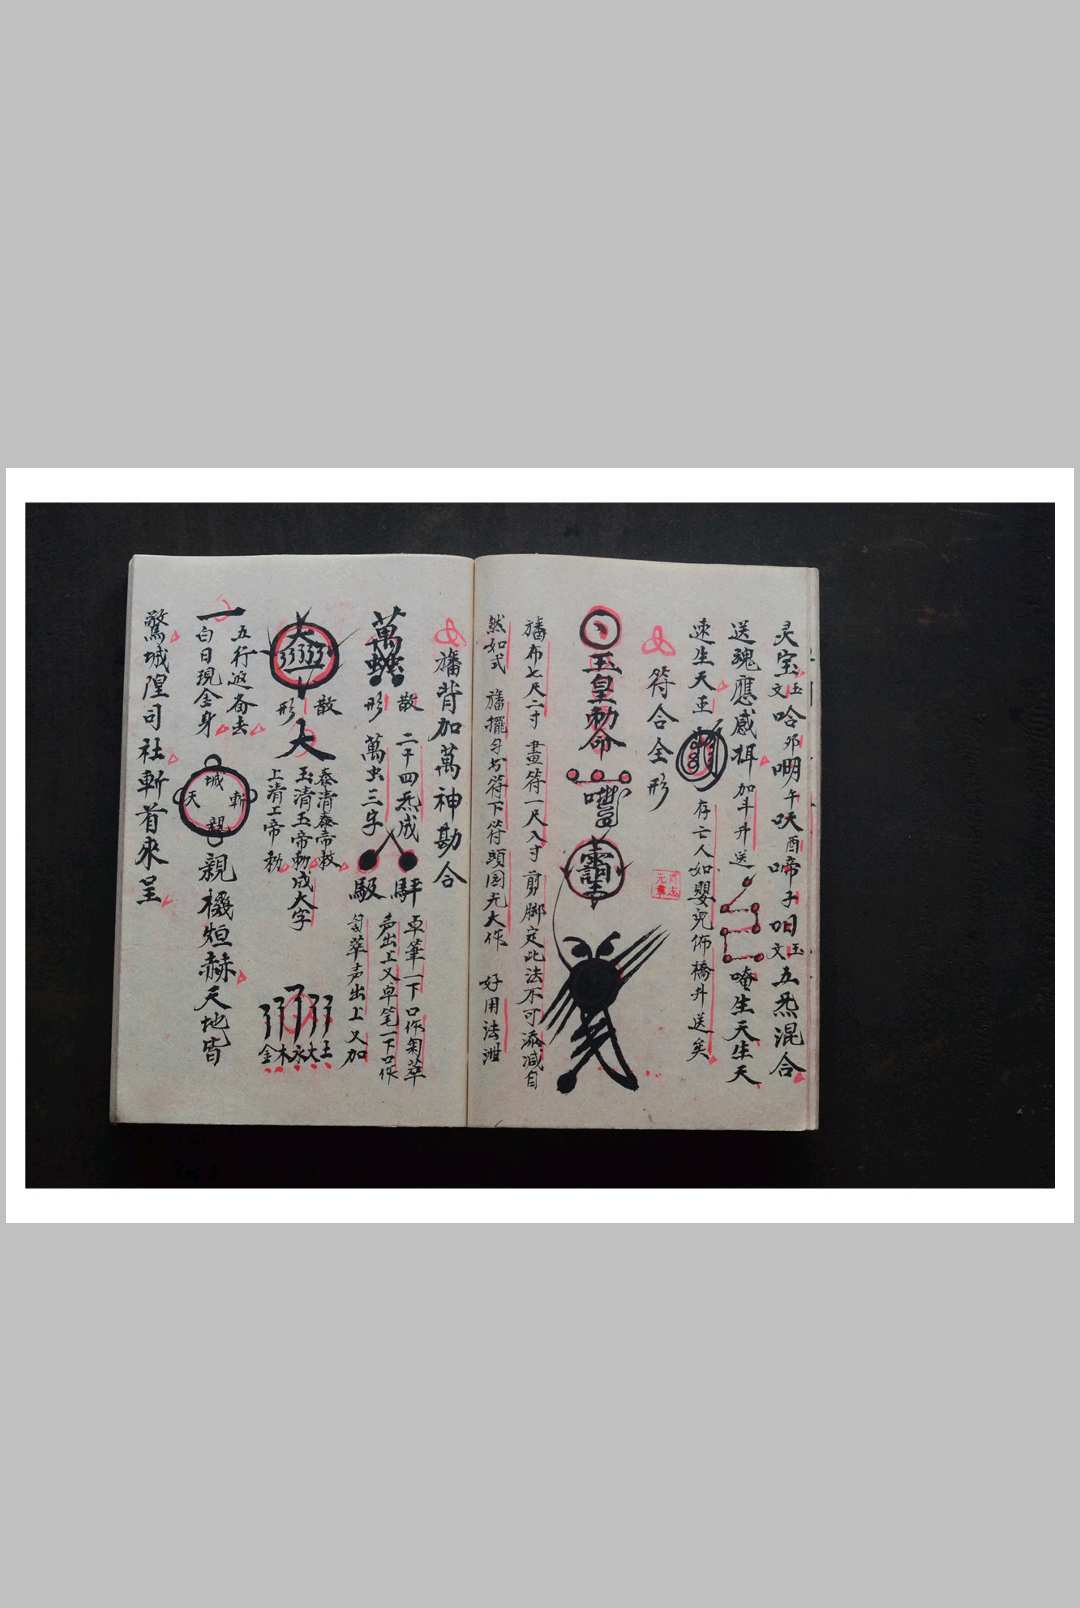 灵宝玉文 哈 卯 嘲 午 呋 酉 啼 子 咀 玉文 五炁混合
送魂應感 加斗升送 唵生天生天
速生天 存亡人如嬰児佈橋升送矣
符合全形
玉皇勅命
旛布七尺二寸 畫符一尺八寸 剪脚定此法不可添减自
然如式 旛擺 符下符頭 大作 好用法泄
旛背加萬神勘合
散 二十四炁成 卓筆一下口作匊萃
萬 形 萬虫三字 声出上又卓笔一下口作
匊萃声出上又加
散形 大 泰清泰帝敕
玉清玉帝勅成大字
上清上帝勅
金木水火土
一 五行 去
白日現金身
城 斬 天 親機烜赫天地皆
驚城隍司社斬首來呈